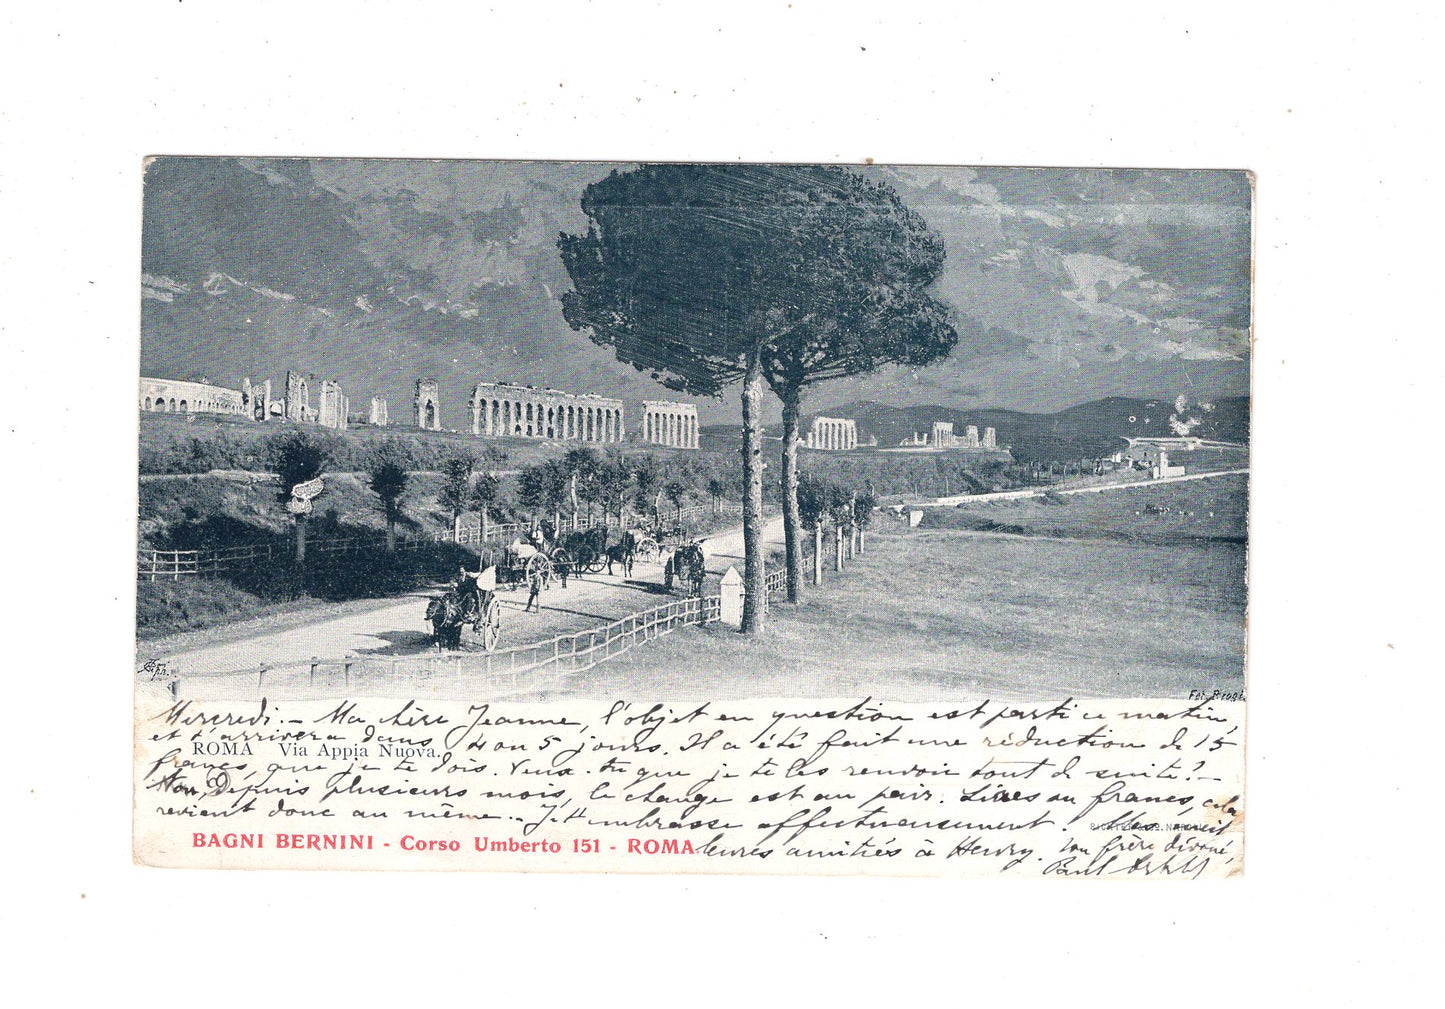 Fot. Brogi.
Mercredi. - Ma chère Jeanne, l'objet en question est parti ce matin,
et t'arrivera dans 4 ou 5 jours. Il a été fait une réduction de 15
ROMA Via Appia Nuova.
francs, que je te dois. Veux-tu que je te les renvoie tout de suite? -
Non, Dépuis plusieurs mois, le change est au pair. Lires ou francs, cela
revient donc au même. - Je t'embrasse affectueusement.
BAGNI BERNINI - Corso Umberto 151 - ROMA
leures amitiés à Henry. Ton frère dévoué,
Paul